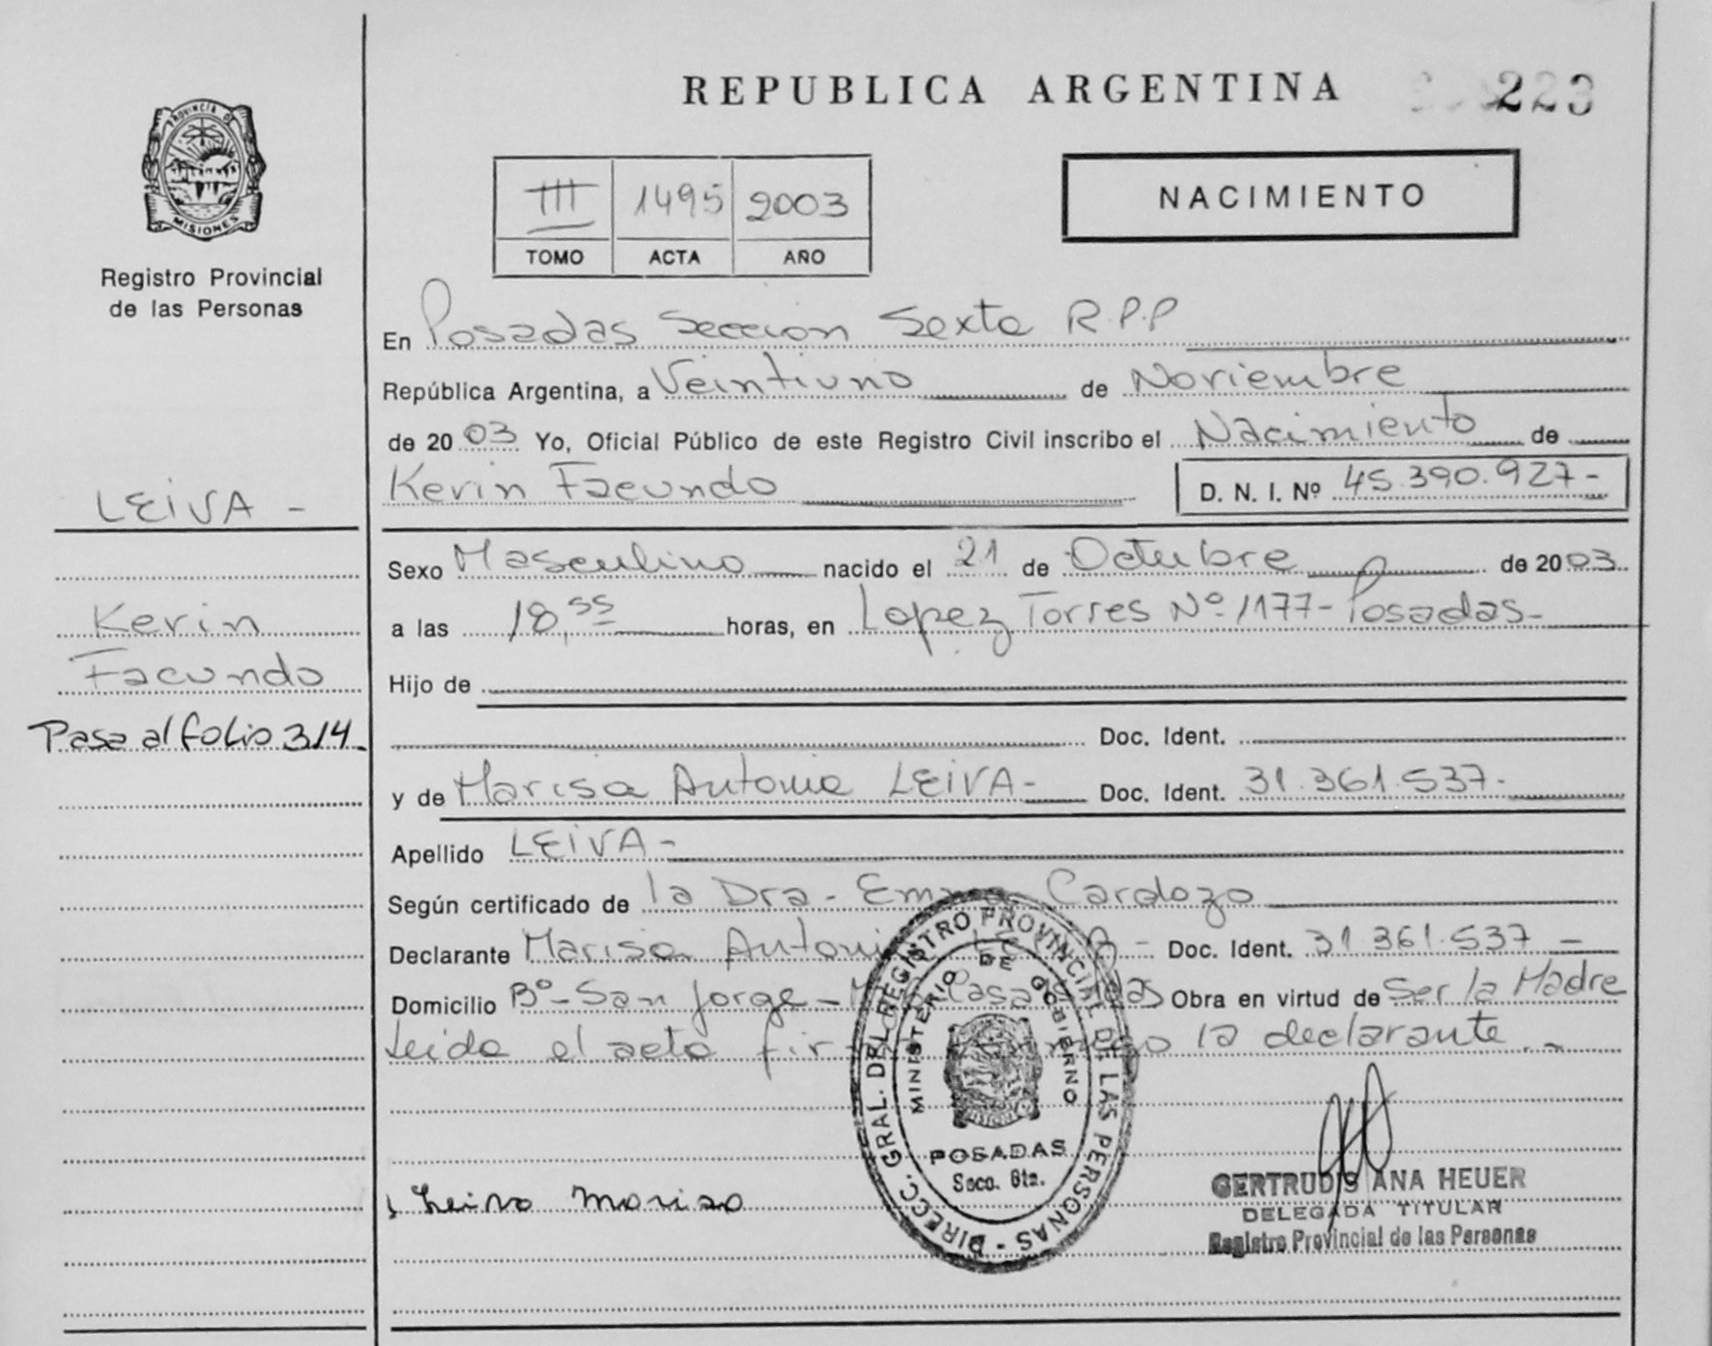 REPUBLICA ARGENTINA
223
PROVINCIA DE
MISIONES
Registro Provincial
de las Personas
III 1495 2003
TOMO ACTA AÑO
NACIMIENTO
En Posadas Seccion Sexta R.P.P
República Argentina, a Veintiuno de Noviembre
de 2003 Yo, Oficial Público de este Registro Civil inscribo el Nacimiento de
Kevin Facundo D. N. I. Nº 45.390.927-
LEIVA -
Sexo Masculino nacido el 21 de Octubre de 2003
Kevin
a las 18,55 horas, en Lopez Torres Nº 1177- Posadas-
Facundo
Hijo de
Pasa al folio 314
Doc. Ident.
y de Marisa Antonia LEIVA- Doc. Ident. 31.361.537-
Apellido LEIVA-
Según certificado de la Dra- Emma Cardozo
Declarante Marisa Antonia LEIVA - Doc. Ident. 31.361.537 -
Domicilio Bº- San Jorge- Casa Obra en virtud de Ser la Madre
Leida el acta la declarante.-
DIRECC. GRAL. DEL REGISTRO PROVINCIAL DE LAS PERSONAS -
MINISTERIO DE GOBIERNO
POSADAS
Secc. 6ta.
Leiva Marisa
GERTRUDIS ANA HEUER
DELEGADA TITULAR
Registro Provincial de las Personas